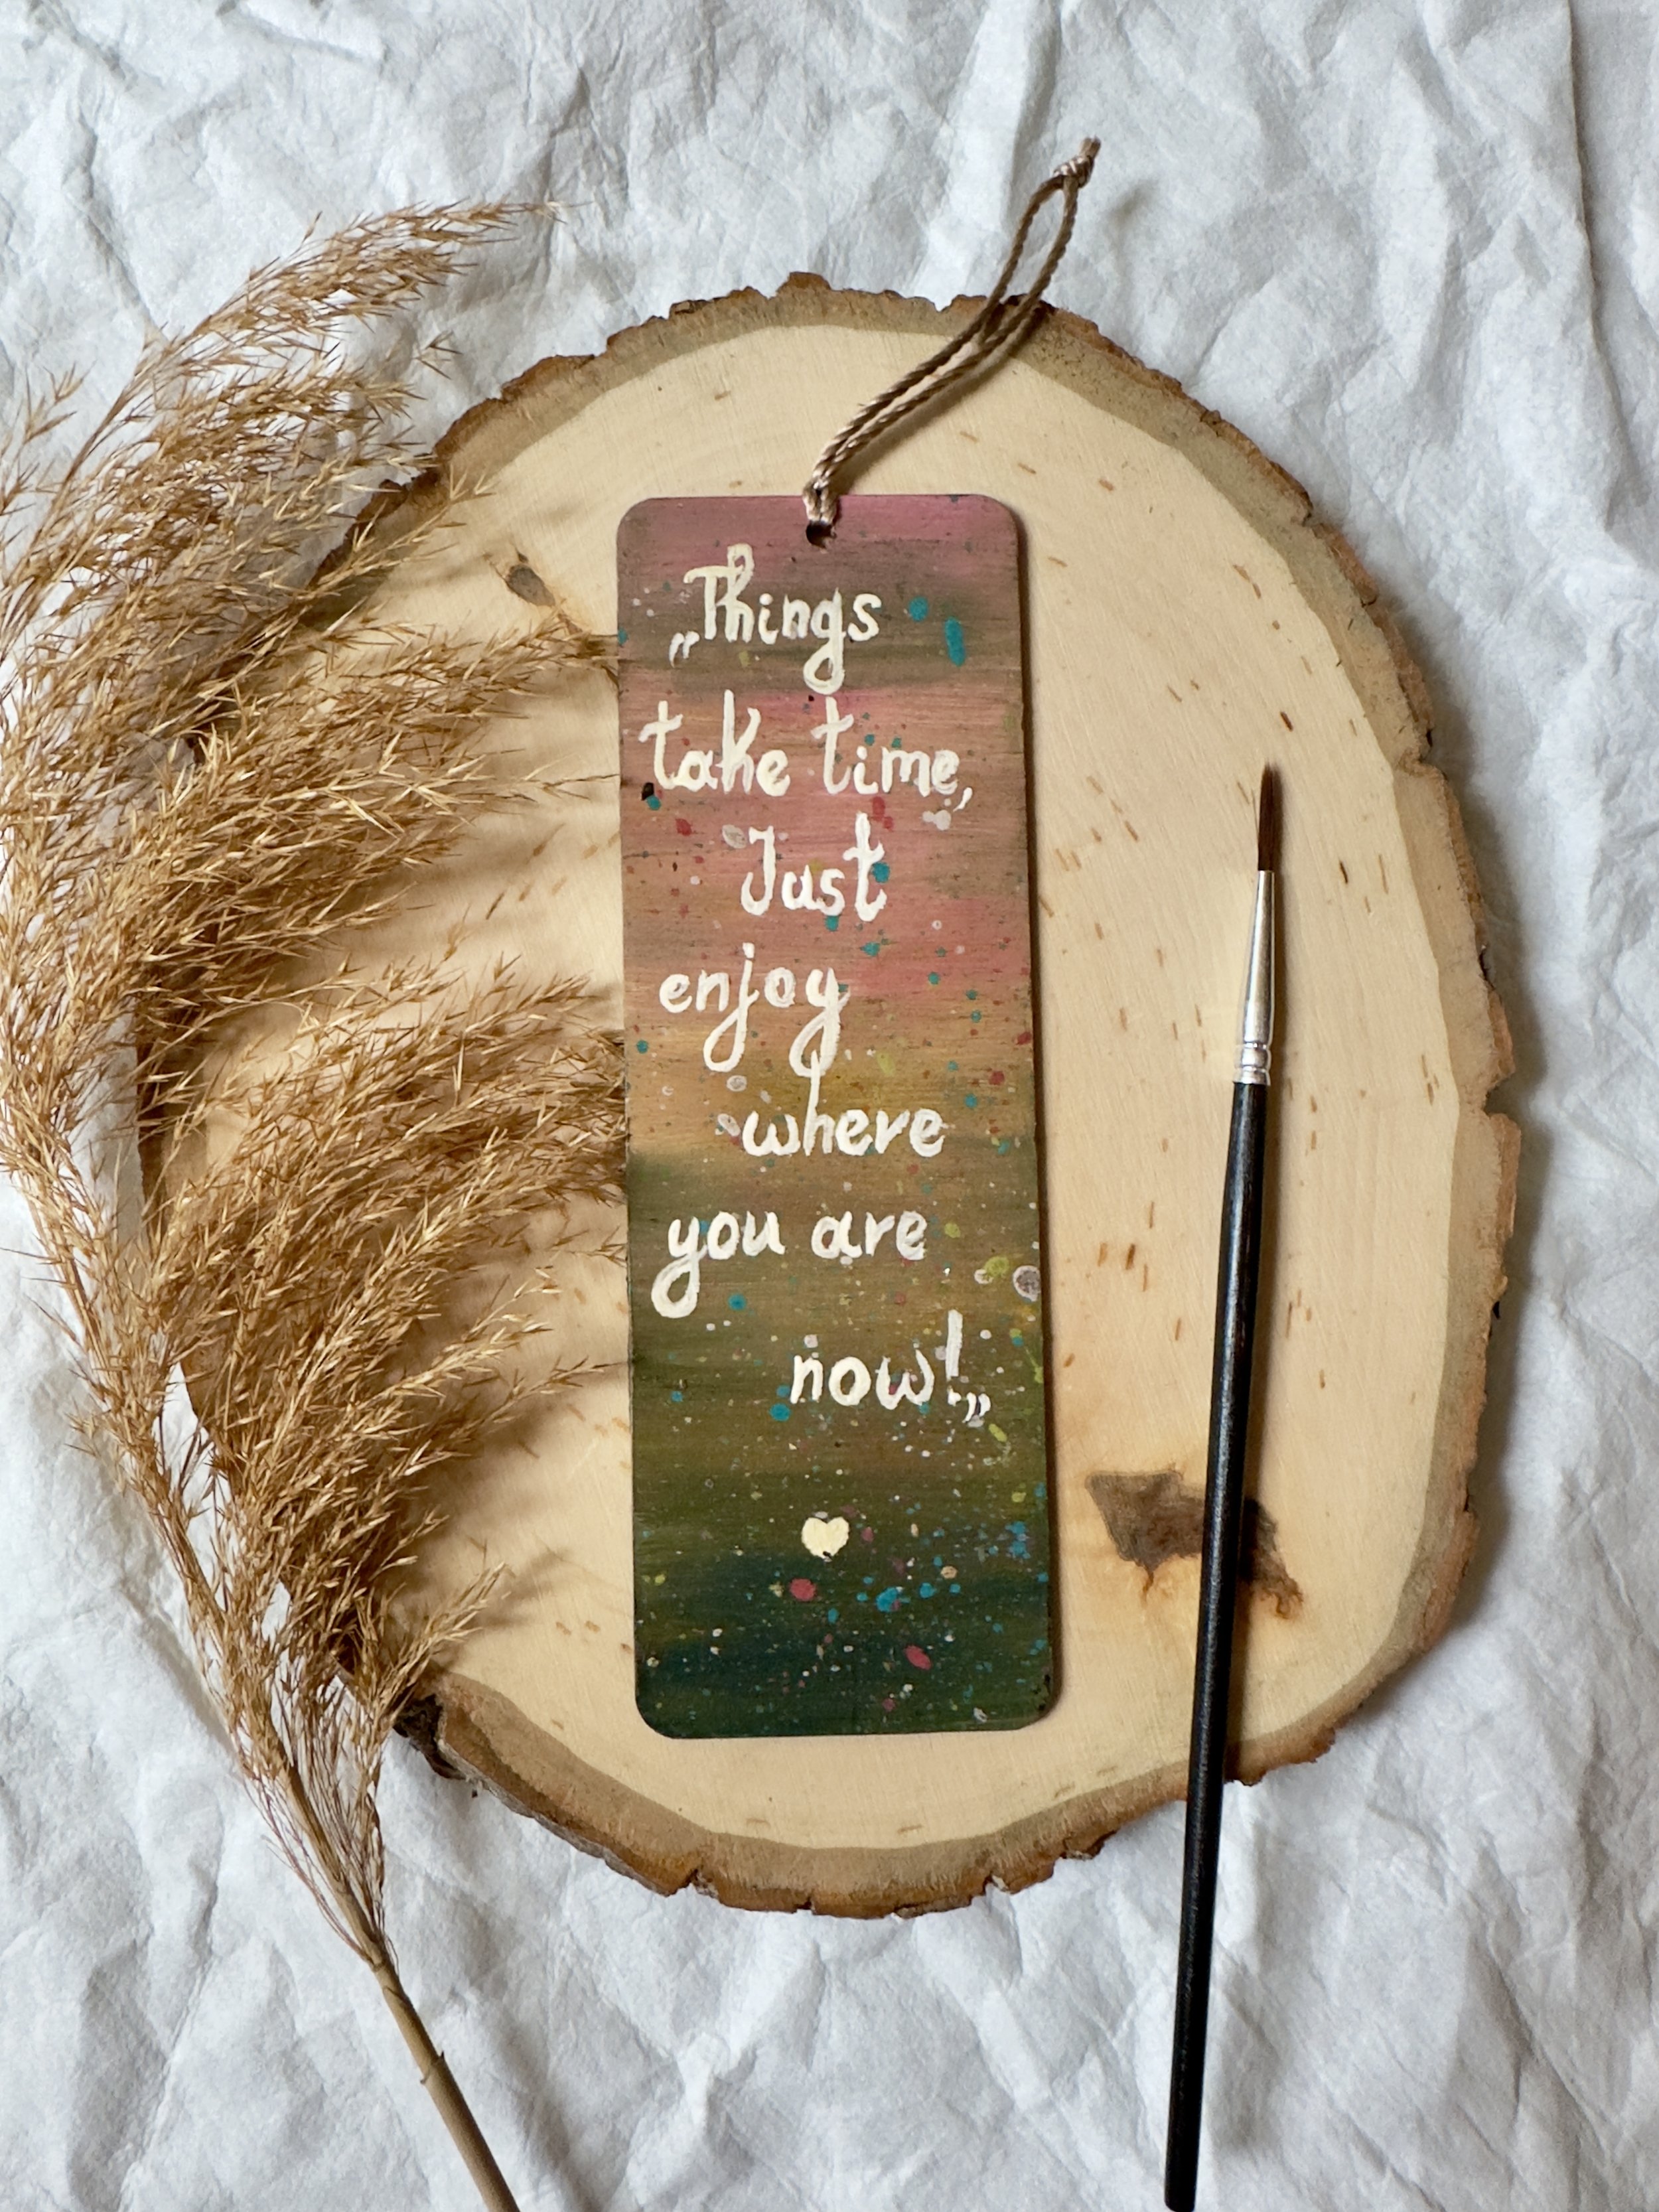 „Things
take time,
Just
enjoy
where
you are
now!„